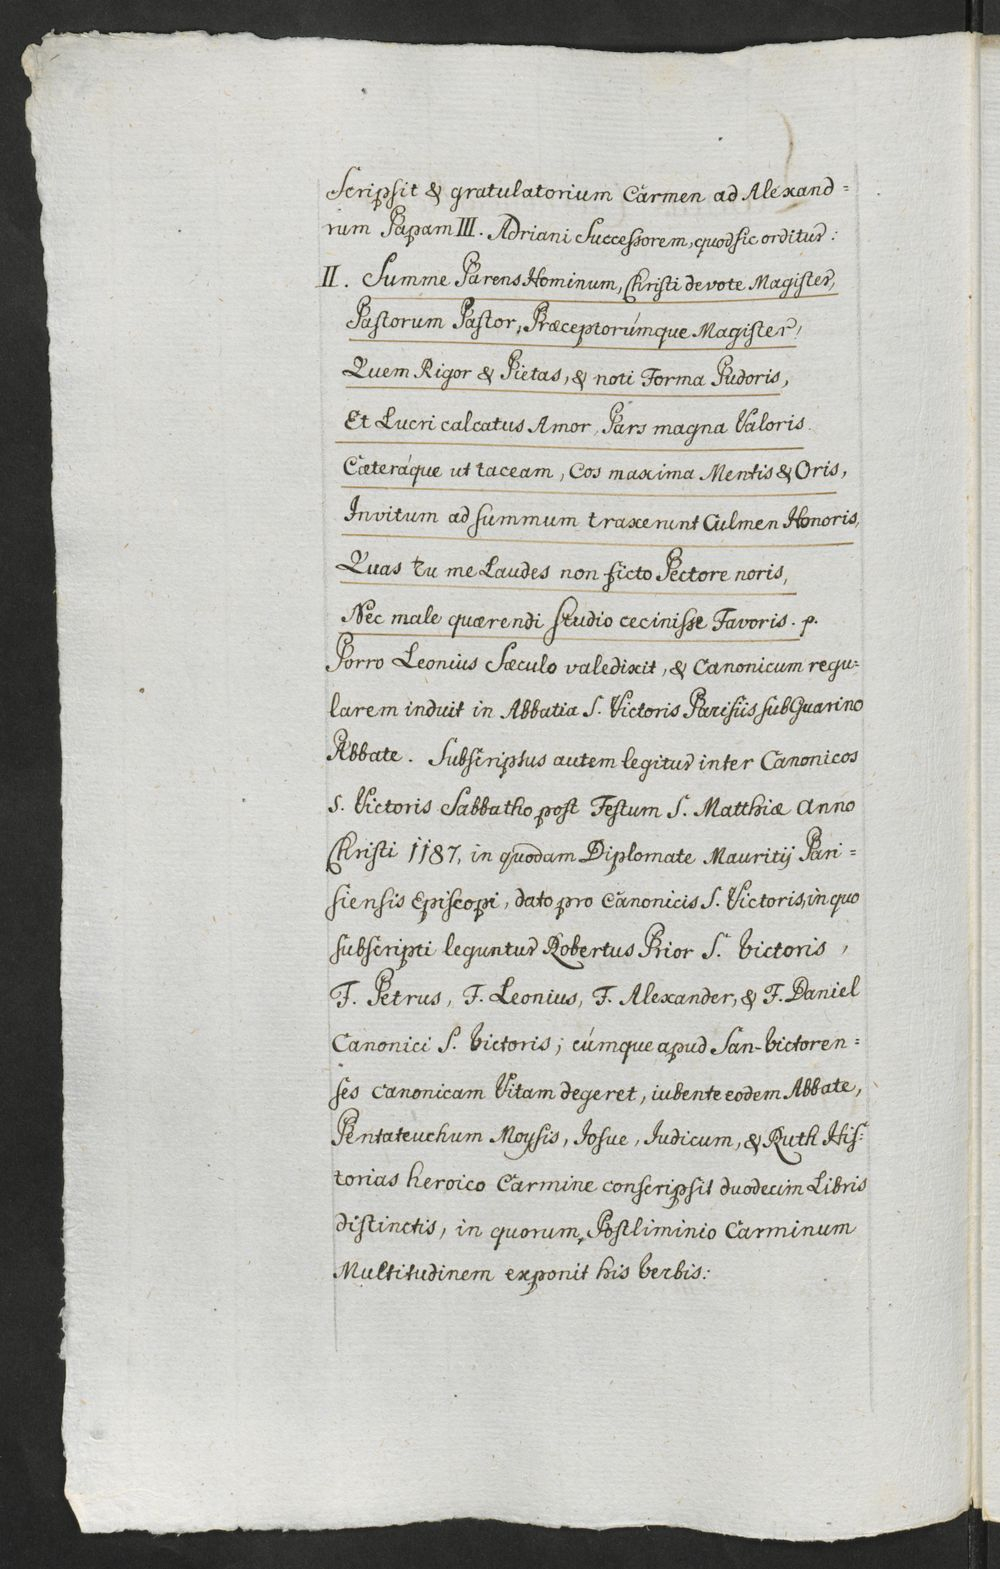 Scripsit & gratulatorium Carmen ad Alexand=
rum Papam III. Adriani Successorem, quod sic orditur:
II. Summe Parens Hominum, Christi devote Magister,
Pastorum Pastor, Præceptorúmque Magister,
Quem Rigor & Pietas, & noti Forma Pudoris,
Et Lucri calcatus Amor, Pars magna Valoris.
Cæteráque ut taceam, Cos maxima Mentis & Oris,
Invitum ad summum traxerunt Culmen Honoris,
Quas tu me Laudes non ficto Pectore noris,
Nec male quærendi studio cecinisse Favoris. p.
Porro Leonius Sæculo valedixit, & Canonicum regu=
larem induit in Abbatia S. Victoris Parisiis sub Guarino
Abbate. Subscriptus autem legitur inter Canonicos
S. Victoris Sabbatho post Festum S. Matthiæ Anno
Christi 1187, in quodam Diplomate Mauritij Pari=
siensis Episcopi, dato pro Canonicis S. Victoris, in quo
subscripti leguntur Robertus Prior S. Victoris,
F. Petrus, F. Leonius, F. Alexander, & F. Daniel
Canonici S. Victoris; cúmque apud San-Victoren=
ses Canonicam Vitam degeret, iubente eodem Abbate,
Pentateuchum Moysis, Josue, Judicum, & Ruth His=
torias heroico Carmine conscripsit duodecim Libris
distinctis, in quorum, Postliminio Carminum
Multitudinem exponit his Verbis: